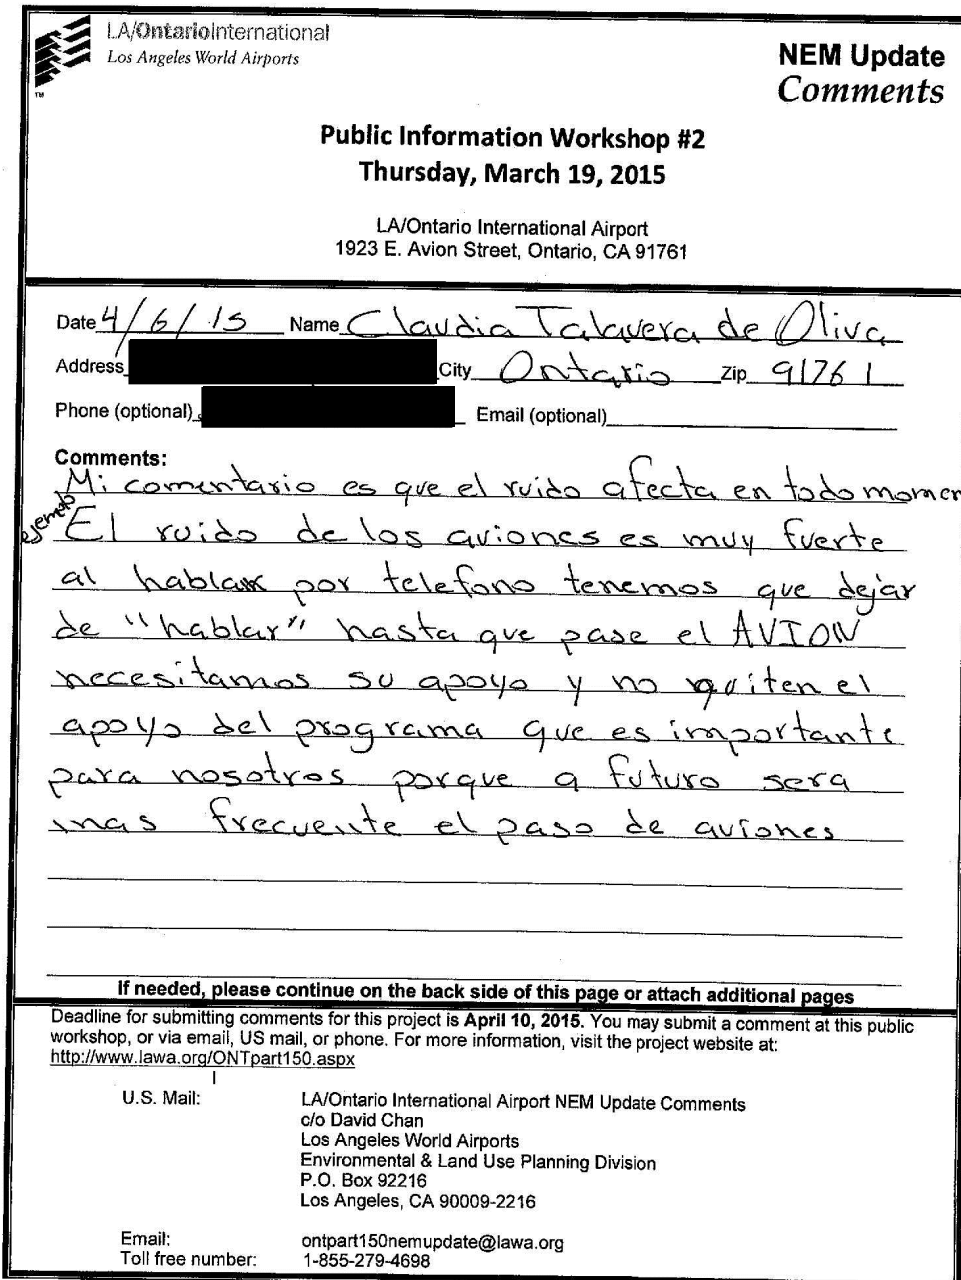 LA/OntarioInternational
Los Angeles World Airports
TM
NEM Update
Comments
Public Information Workshop #2
Thursday, March 19, 2015
LA/Ontario International Airport
1923 E. Avion Street, Ontario, CA 91761
Date 4/6/15 Name Claudia Talavera de Oliva
Address City Ontario Zip 91761
Phone (optional) Email (optional)
Comments:
Mi comentario es que el ruido afecta en todo momen
ejemplo El ruido de los aviones es muy fuerte
al hablar por telefono tenemos que dejar
de "hablar" hasta que pase el AVION
necesitamos su apoyo y no quiten el
apoyo del programa que es importante
para nosotros porque a futuro sera
mas frecuente el paso de aviones
If needed, please continue on the back side of this page or attach additional pages
Deadline for submitting comments for this project is April 10, 2015. You may submit a comment at this public
workshop, or via email, US mail, or phone. For more information, visit the project website at:
http://www.lawa.org/ONTpart150.aspx
U.S. Mail: LA/Ontario International Airport NEM Update Comments
c/o David Chan
Los Angeles World Airports
Environmental & Land Use Planning Division
P.O. Box 92216
Los Angeles, CA 90009-2216
Email: ontpart150nemupdate@lawa.org
Toll free number: 1-855-279-4698